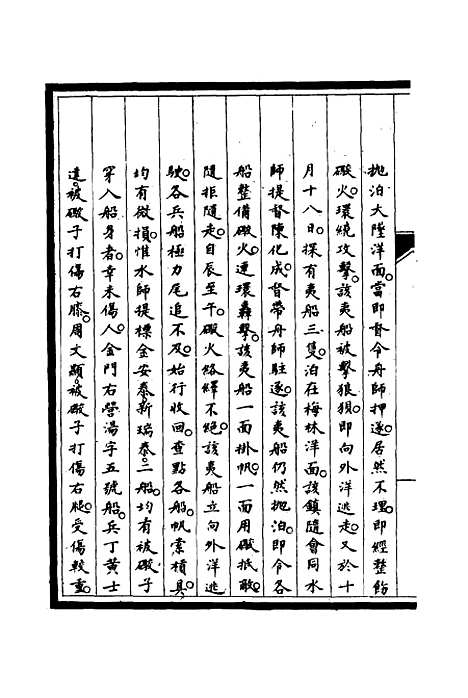 抛泊大隉洋面。當即督令舟師押逐。居然不理。即經整飭
礮火。環繞攻擊。該夷船被擊狼狽。即向外洋逃走。又於十
月十八日。探有夷船三隻。泊在梅林洋面。該鎮隨會同水
師提督陳化成。督帶舟師駐逐。該夷船仍然抛泊。即令各
船整備礮火。連環轟擊。該夷船一面掛帆。一面用礮抵敵。
隨拒隨走。自辰至午。礮火絡繹不絕。該夷船立向外洋逃
駛。各兵船極力尾追不及。始行收回。查點各船。帆索槓具。
均有微損。惟水師提標金安泰。新瑞泰。二船。均有被礮子
穿入船身者。幸未傷人。金門右營湯字五號船。兵丁黃士
進。被礮子打傷右膝。周文顯。被礮子打傷右腿。受傷較重。